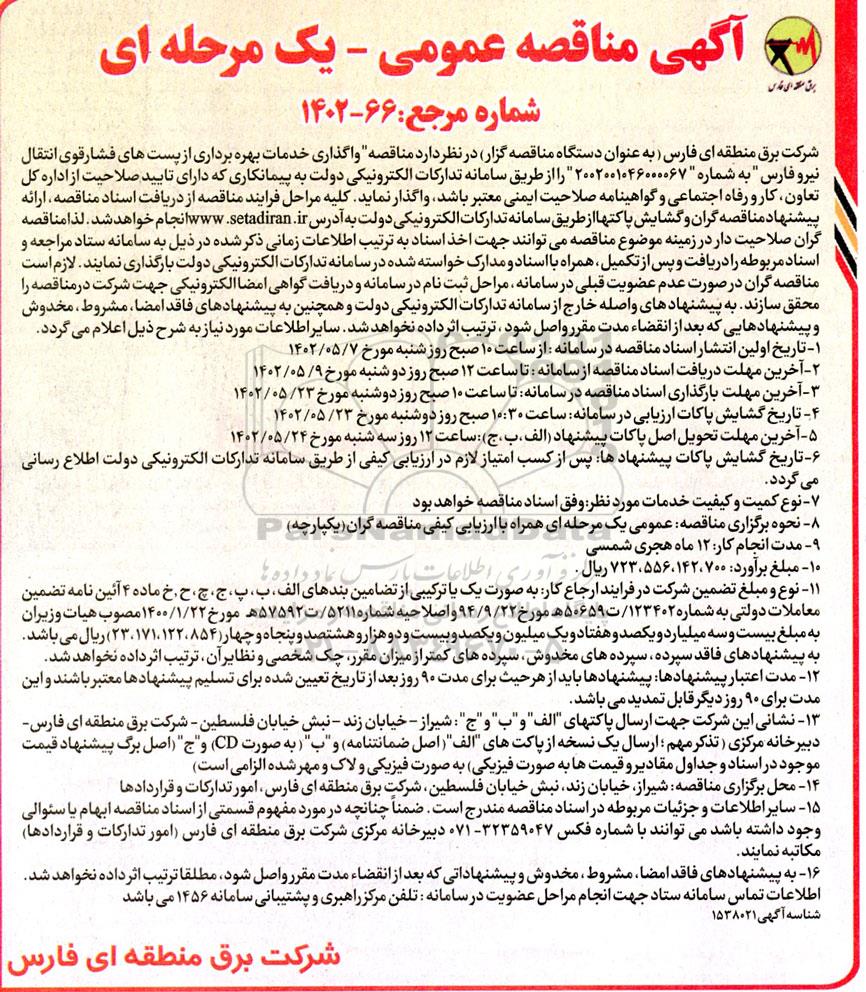 آگهی مناقصه عمومی - یک مرحله ای
برق منطقه ای فارس
شماره مرجع:۶۶-۱۴۰۲
شرکت برق منطقه ای فارس (به عنوان دستگاه مناقصه گزار) در نظر دارد مناقصه "واگذاری خدمات بهره برداری از پست های فشارقوی انتقال
نیرو فارس "به شماره " ۲۰۰۲۰۰۱۰۴۶۰۰۰۰۶۷ " را از طریق سامانه تدارکات الکترونیکی دولت به پیمانکاری که دارای تایید صلاحیت از اداره کل
تعاون، کار و رفاه اجتماعی و گواهینامه صلاحیت ایمنی معتبر باشد، واگذار نماید. کلیه مراحل فرایند مناقصه از دریافت اسناد مناقصه، ارائه
پیشنهاد مناقصه گران و گشایش پاکتها از طریق سامانه تدارکات الکترونیکی دولت به آدرس www.setadiran.ir انجام خواهد شد. لذا مناقصه
گران صلاحیت دار در زمینه موضوع مناقصه می توانند جهت اخذ اسناد به ترتیب اطلاعات زمانی ذکر شده در ذیل به سامانه ستاد مراجعه و
اسناد مربوطه را دریافت و پس از تکمیل، همراه با اسناد و مدارک خواسته شده در سامانه تدارکات الکترونیکی دولت بارگذاری نمایند. لازم است
مناقصه گران در صورت عدم عضویت قبلی در سامانه، مراحل ثبت نام در سامانه و دریافت گواهی امضا الکترونیکی جهت شرکت در مناقصه را
محقق سازند. به پیشنهادهای واصله خارج از سامانه تدارکات الکترونیکی دولت و همچنین به پیشنهادهای فاقد امضا، مشروط، مخدوش
و پیشنهادهایی که بعد از انقضاء مدت مقرر واصل شود، ترتیب اثر داده نخواهد شد. سایر اطلاعات مورد نیاز به شرح ذیل اعلام می گردد.
۱-تاریخ اولین انتشار اسناد مناقصه در سامانه : از ساعت ۱۰ صبح روز شنبه مورخ ۱۴۰۲/۰۵/۷
۲-آخرین مهلت دریافت اسناد مناقصه از سامانه : تا ساعت ۱۲ صبح روز دو شنبه مورخ ۱۴۰۲/۰۵/۹
۳-آخرین مهلت بارگذاری اسناد مناقصه در سامانه: تا ساعت ۱۰ صبح روز دوشنبه مورخ ۱۴۰۲/۰۵/۲۳
۴- تاریخ گشایش پاکات ارزیابی در سامانه: ساعت ۱۰:۳۰ صبح روز دوشنبه مورخ ۱۴۰۲/۰۵/۲۳
۵-آخرین مهلت تحویل اصل پاکات پیشنهاد (الف،ب،ج):ساعت ۱۲ روز سه شنبه مورخ ۱۴۰۲/۰۵/۲۴
۶-تاریخ گشایش پاکات پیشنهاد ها: پس از کسب امتیاز لازم در ارزیابی کیفی از طریق سامانه تدارکات الکترونیکی دولت اطلاع رسانی
می گردد.
۷-نوع کمیت و کیفیت خدمات مورد نظر:وفق اسناد مناقصه خواهد بود
۸- نحوه برگزاری مناقصه: عمومی یک مرحله ای همراه با ارزیابی کیفی مناقصه گران(یکپارچه)
۹- مدت انجام کار: ۱۲ ماه هجری شمسی
۱۰- مبلغ برآورد: ۷۲۳،۵۵۶،۱۴۲،۷۰۰ ریال.
۱۱- نوع و مبلغ تضمین شرکت در فرایند ارجاع کار: به صورت یک یا ترکیبی از تضامین بندهای الف، ب، پ، ج، چ، ح، خ ماده ۴ آئین نامه تضمین
معاملات دولتی به شماره ۱۲۳۴۰۲/ت۵۰۶۵۹ه مورخ ۹۴/۹/۲۲ و اصلاحیه شماره ۵۲۱۱/ت۵۷۵۹۲ه مورخ ۱۴۰۰/۱/۲۲ مصوب هیات وزیران
به مبلغ بیست و سه میلیارد و یکصد و هفتاد و یک میلیون و یکصد و بیست و دو هزار و هشتصد و پنجاه و چهار (۲۳.۱۷۱.۱۲۲.۸۵۴) ریال می باشد.
به پیشنهادهای فاقد سپرده، سپرده های مخدوش، سپرده های کمتر از میزان مقرر، چک شخصی و نظایر آن، ترتیب اثر داده نخواهد شد.
۱۲- مدت اعتبار پیشنهادها: پیشنهادها باید از هر حیث برای مدت ۹۰ روز بعد از تاریخ تعیین شده برای تسلیم پیشنهادها معتبر باشند و این
مدت برای ۹۰ روز دیگر قابل تمدید می باشد.
۱۳- نشانی این شرکت جهت ارسال پاکتهای "الف" و "ب" و "ج" : شیراز - خیابان زند - نبش خیابان فلسطین - شرکت برق منطقه ای فارس-
دبیرخانه مرکزی (تذکر مهم ؛ ارسال یک نسخه از پاکت های "الف"( اصل ضمانتنامه) و "ب" ( به صورت CD) و "ج" (اصل برگ پیشنهاد قیمت
موجود در اسناد و جداول مقادیر و قیمت ها به صورت فیزیکی) به صورت فیزیکی و لاک و مهر شده الزامی است)
۱۴- محل برگزاری مناقصه: شیراز، خیابان زند، نبش خیابان فلسطین، شرکت برق منطقه ای فارس، امور تدارکات و قراردادها
۱۵- سایر اطلاعات و جزئیات مربوطه در اسناد مناقصه مندرج است. ضمناً چنانچه در مورد مفهوم قسمتی از اسناد مناقصه ابهام یا سئوالی
وجود داشته باشد می توانند با شماره فکس ۳۲۳۵۹۰۴۷-۰۷۱ دبیرخانه مرکزی شرکت برق منطقه ای فارس (امور تدارکات و قراردادها)
مکاتبه نمایند.
۱۶- به پیشنهادهای فاقد امضا، مشروط، مخدوش و پیشنهاداتی که بعد از انقضاء مدت مقرر واصل شود، مطلقا ترتیب اثر داده نخواهد شد.
اطلاعات تماس سامانه ستاد جهت انجام مراحل عضویت در سامانه : تلفن مرکز راهبری و پشتیبانی سامانه ۱۴۵۶ می باشد
شناسه آگهی ۱۵۳۸۰۲۱
شرکت برق منطقه ای فارس
ParsNamadData